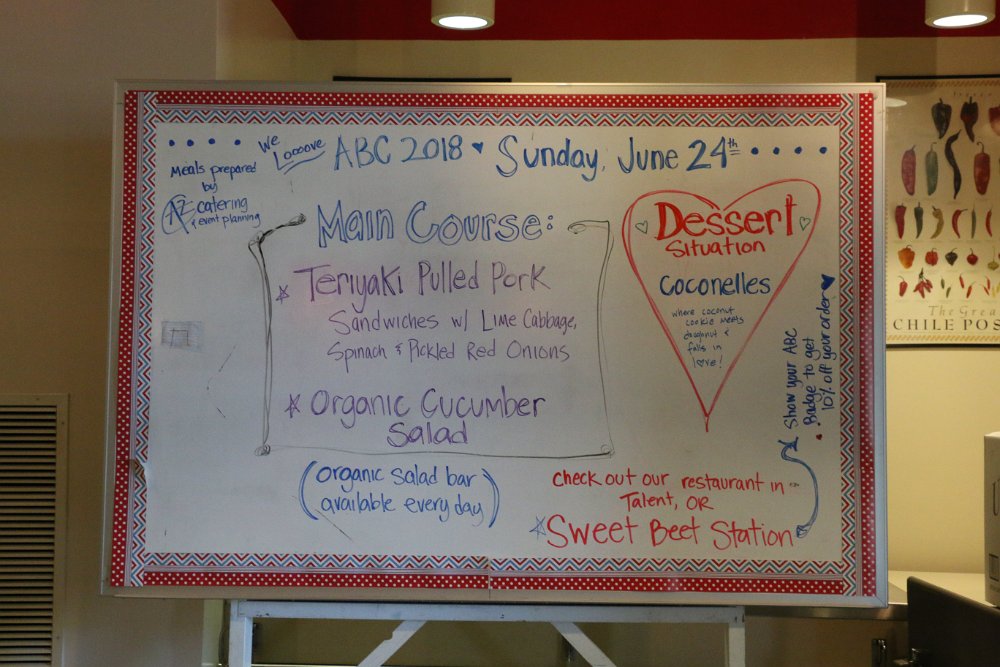 We
Looove
ABC 2018 ♥ Sunday, June 24th
Meals prepared
by
AZ catering
& event planning
Main Course:
Teriyaki Pulled Pork
Sandwiches w/ Lime Cabbage,
Spinach & Pickled Red Onions
Organic Cucumber
Salad
(organic salad bar
available every day)
Dessert
Situation
Coconelles
where coconut
cookie meets
&
falls in
love!
Show your ABC
Badge to get
10% off your order ♥
check out our restaurant in
Talent, OR
Sweet Beet Station
The Grea
CHILE POS